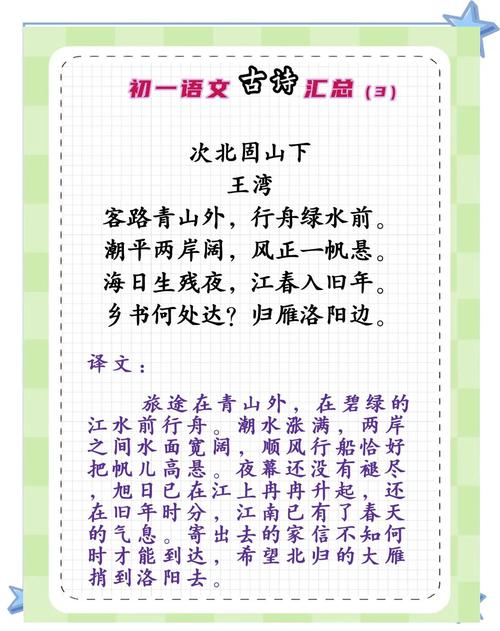 初一语文古诗汇总（3）
次北固山下
王湾
客路青山外，行舟绿水前。
潮平两岸阔，风正一帆悬。
海日生残夜，江春入旧年。
乡书何处达？归雁洛阳边。
译文：
旅途在青山外，在碧绿的
江水前行舟。潮水涨满，两岸
之间水面宽阔，顺风行船恰好
把帆儿高悬。夜幕还没有褪尽
，旭日已在江上冉冉升起，还
在旧年时分，江南已有了春天
的气息。寄出去的家信不知何
时才能到达，希望北归的大雁
捎到洛阳去。